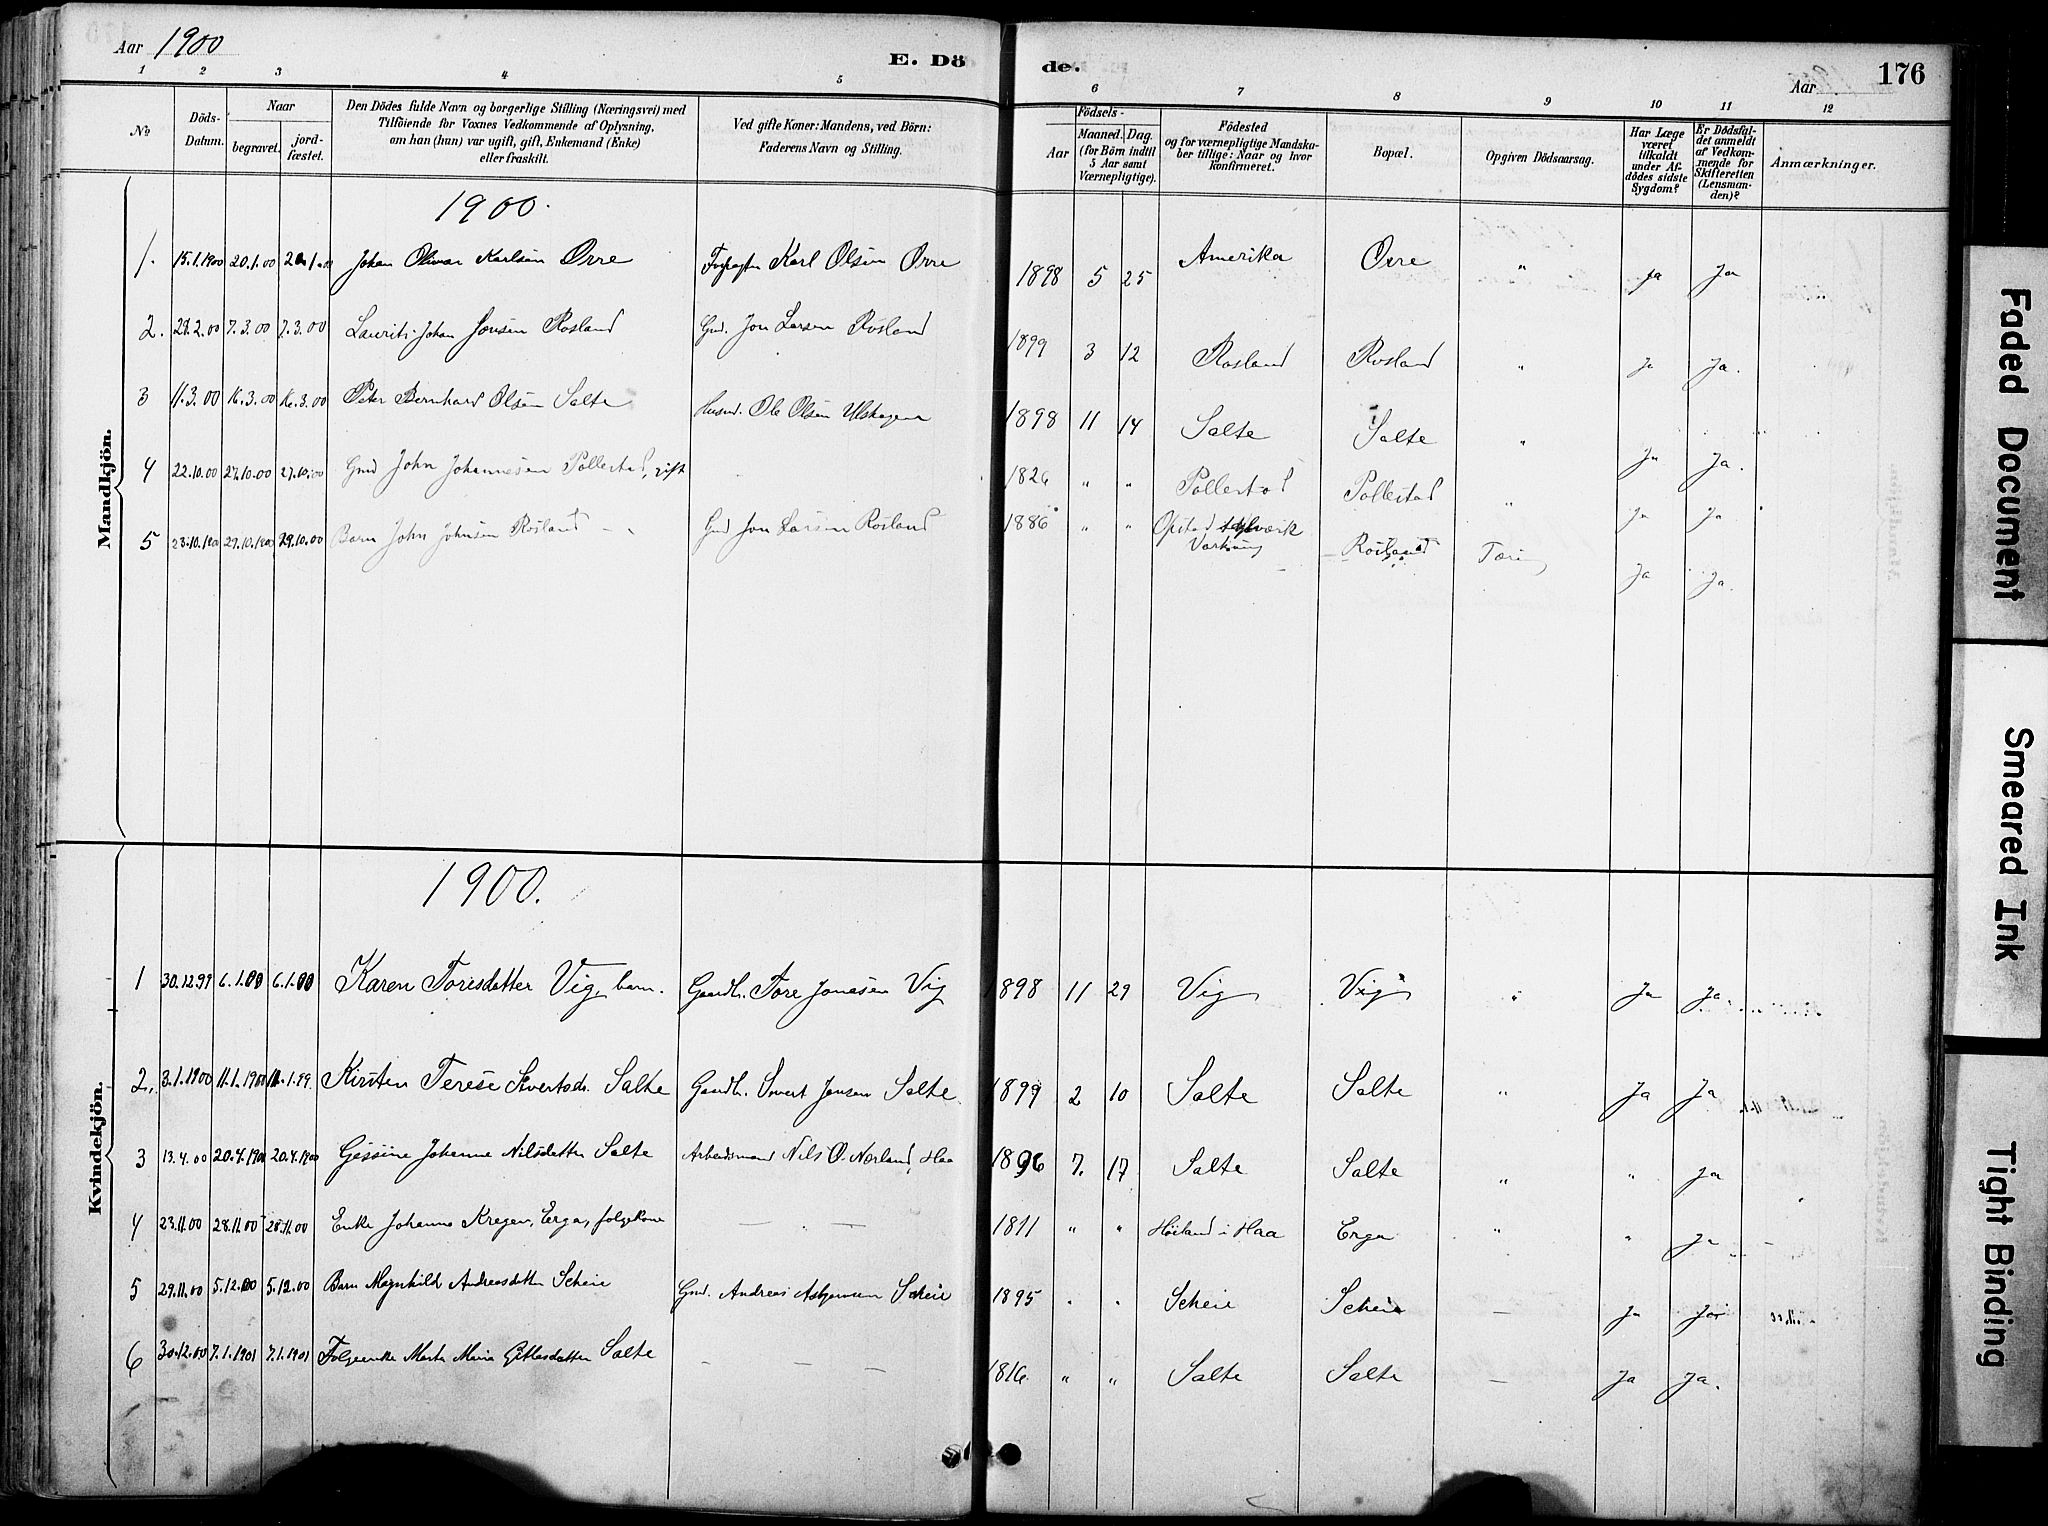 Aar 1900
E. Döde.
Aar
176
1 2 3 4 5 6 7 8 9 10 11 12
No
Döds-Datum.
Naar
begravet.
jordfæstet.
Den Dödes fulde Navn og borgerlige Stilling (Næringsvei) med
Tilföiende for Voxnes Vedkommende af Oplysning,
om han (hun) var ugift, gift, Enkemand (Enke)
eller fraskilt.
Ved gifte Koner: Mandens, ved Börn:
Faderens Navn og Stilling.
Födsels-
Aar
Maaned. Dag.
(for Börn indtil
5 Aar samt
Værnepligtige).
Födested
og for værnepligtige Mandskaber tillige: Naar og hvor
konfirmeret.
Bopæl.
Opgiven Dödsaarsag.
Har Læge
været
tilkaldt
under Afdödes sidste
Sygdom?
Er Dödsfaldet anmeldt
af Vedkommende for
Skifteretten
(Lensmanden)?
Anmærkninger.
Mandkjön.
1900.
1. 15.1.1900 20.1.00 20.1.00 Johan Olivar Karlsen Orre Karl Olsen Orre 1898 5 25 Amerika Orre " ja Ja
2. 28.2.00 7.3.00 7.3.00 Laurits Johan Jonsen Rosland Gmd. Jon Larsen Rosland 1899 3 12 Rosland Rosland " Ja Ja.
3 11.3.00 16.3.00 16.3.00 Peter Bernhard Olsen Salte Husmd. Ole Olsen 1898 11 14 Salte Salte " Ja Ja.
4 22.10.00 27.10.00 27.10.00 Gmd John Johannesen Pollestad, gift 1826 " " Pollestad Pollestad " Ja Ja
5 23.10.1900 29.10.1900 29.10.00 Barn John Johnsen Rosland Gmd Jon Larsen Rosland 1886 " " Opstad Rosland Ja Ja.
Kvindekjön.
1900.
1 30.12.99 6.1.00 6.1.00 Karen Toresdatter Vig, barn. Gaardbr. Tore Jonasen Vig 1898 11 29 Vig Vig " Ja Ja.
2. 3.1.1900 11.1.1900 11.1.99. Kirsten Terese Sivertsdr. Salte Gaardbr. Sivert Jonsen Salte. 1899 2 10 Salte Salte " Ja Ja
3 13.4.00 20.4.1900 20.4.1900 Gessine Johanne Nilsdatter Salte Arbeidsmand Nils O. Nærland, Haa 1896 7. 17 Salte Salte " " Ja
4 23.11.00 28.11.00 28.11.00 Enke Johanne Erga, folgekone — — 1811 " " Höiland i Haa Erga " " Ja
5 29.11.00 5.12.00 5.12.00 Barn Magnhild Andreasdatter Scheie Gmd. Andreas Scheie 1895 " " Scheie Scheie — Ja Ja
6 30.12.00 7.1.1901 7.1.1901 Folgeenke Marta Maria Gitlesdatter Salte — — — 1816 " " Salte Salte — Ja Ja.
Faded Document
Smeared Ink
Tight Binding